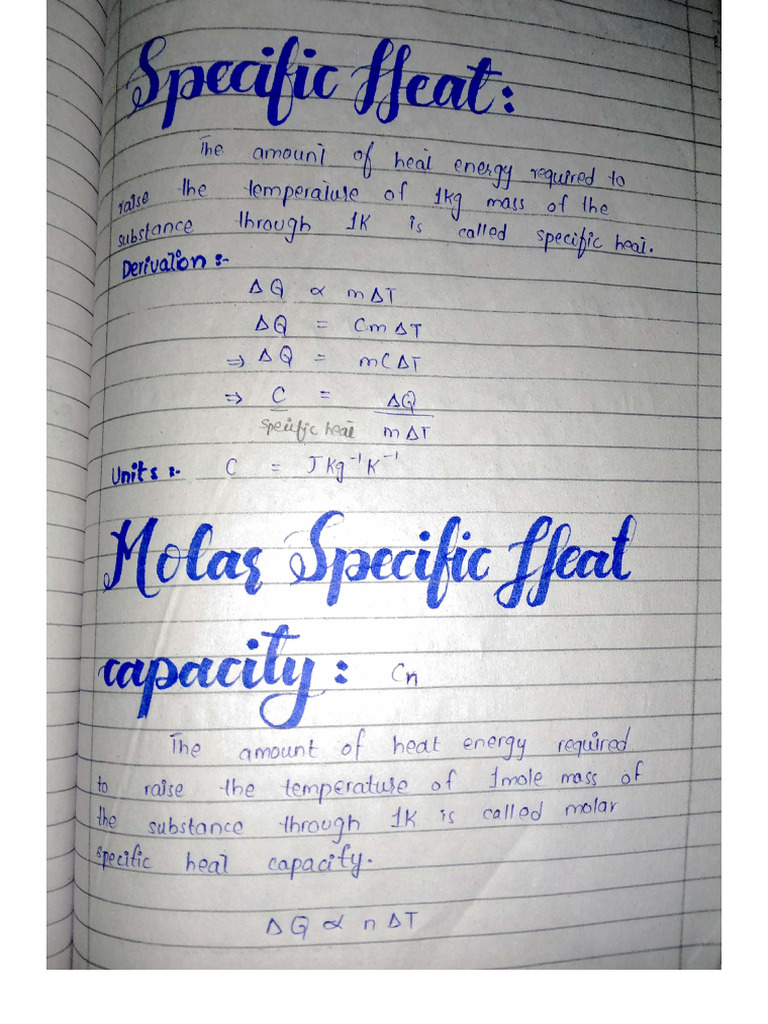 Specific Heat:
The amount of heat energy required to
raise the temperature of 1kg mass of the
substance through 1K is called specific heat.
Derivation :-
ΔQ ∝ mΔT
ΔQ = CmΔT
⇒ ΔQ = mCΔT
⇒ C = ΔQ
specific heat mΔT
Units :- C = JKg⁻¹K⁻¹
Molar Specific Heat
capacity: Cn
The amount of heat energy required
to raise the temperature of 1mole mass of
the substance through 1K is called molar
specific heat capacity.
ΔQ ∝ nΔT